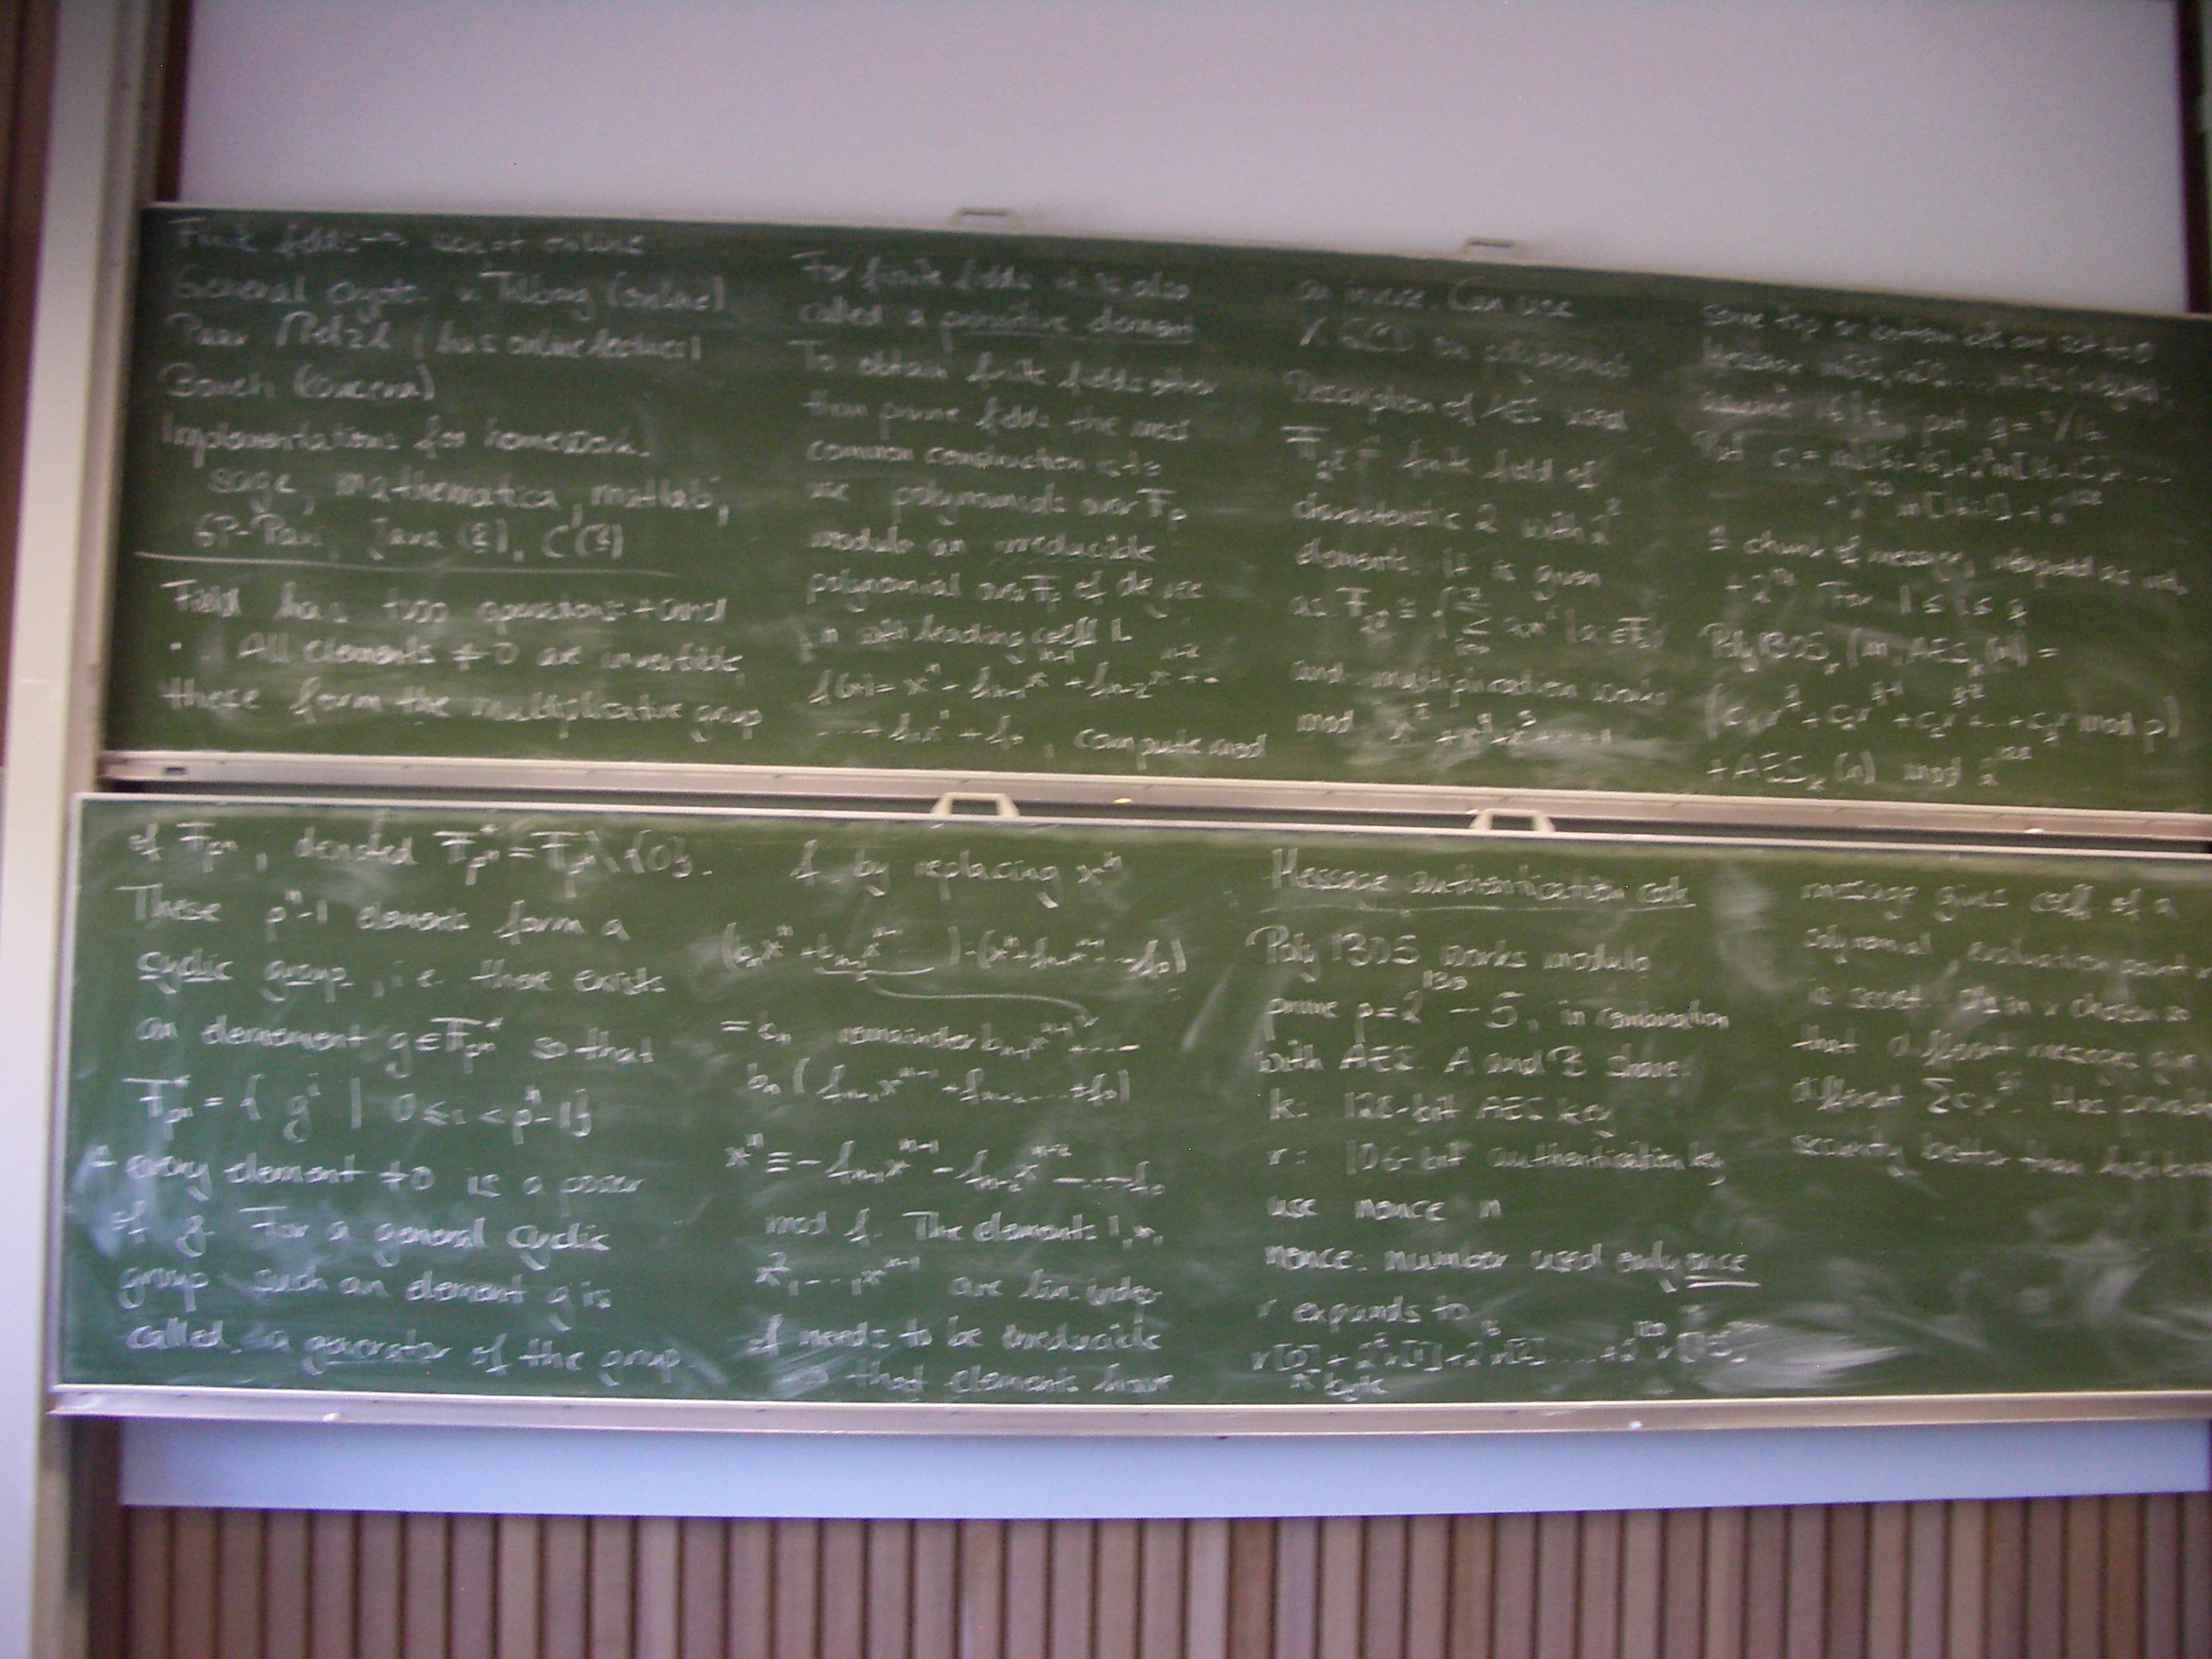 Finite fields → script online
General crypto: v. Tilborg (online)
Paar / Pelzl (has online lectures)
Boneh (coursera)
Implementations for homework:
sage, mathematica, matlab,
GP-Pari, Java (?), C (?)
Field has two operations + and
· . All elements ≠ 0 are invertible,
these form the multiplicative group
of F_{p^n}, denoted F*_{p^n} = F_{p^n} \ {0}.
These p^n-1 elements form a
cyclic group, i.e. there exists
an elemement g ∈ F*_{p^n} so that
F*_{p^n} = { g^i | 0 ≤ i < p^n-1}
every element ≠0 is a power
of g. For a general cyclic
group such an element g is
called a generator of the group.
For finite fields it is also
called a primitive element
To obtain finite fields other
than prime fields the most
common construction is to
use polynomials over F_p
modulo an irreducible
polynomial over F_p of degree
n with leading coeff 1.
f(x) = x^n + f_{n-1}x^{n-1} + f_{n-2}x^{n-2} + ..
... + f_1x^1 + f_0, compute mod
f by replacing x^n
(b_n x^n + b_{n-1}x^{n-1} ) : (x^n + f_{n-1}x^{n-1} + ... f_0)
= b_n remainder b_{n-1}x^{n-1} + ...
b_n (f_{n-1}x^{n-1} + f_{n-2} ... + f_0)
x^n ≡ - f_{n-1}x^{n-1} - f_{n-2}x^{n-2} - ... - f_0
mod f. The elements 1, x,
x^2, ..., x^{n-1} are lin. indep
f needs to be irreducible
so that elements have
an inverse. Can use
XGCD on polynomials
Description of AES used
F_{2^8} = finite field of
characteristic 2 with 2^8
elements. It is given
as F_{2^8} ≅ { Σ_{i=0}^7 a_i x^i | a_i ∈ F_2}
and multiplication works
mod x^8 + x^4 + x^3 + x + 1
Message authentication code
Poly 1305 works modulo
prime p = 2^130 - 5, in combination
with AES. A and B share:
k: 128-bit AES key
r: 106-bit authentication key
use nonce n
nonce: number used only once
r expands to
r[0] + 2^8 r[1] + 2^16 r[2] ... + 2^120 r[15]
↖ byte
some top or bottom bits are set to 0
Message m[0], m[1], ...
assume 16|l, put q = l/16
Put c_i = m[16i-16] + 2^8 m[16i-15] + ...
+ 2^120 m[16i-1] + 2^128
≙ chunk of message, interpreted as
+ 2^128 For 1 ≤ i ≤ q
Poly1305_r (m, AES_k(n)) =
(c_1r^q + c_2r^{q-1} + c_3r^{q-2} + ... + c_qr mod p)
+ AES_k(n) mod 2^128
message gives coeff of a
polynomial evaluation point r
is secret r chosen so
that different messages give
different Σ c_i r^i. Has
security better than